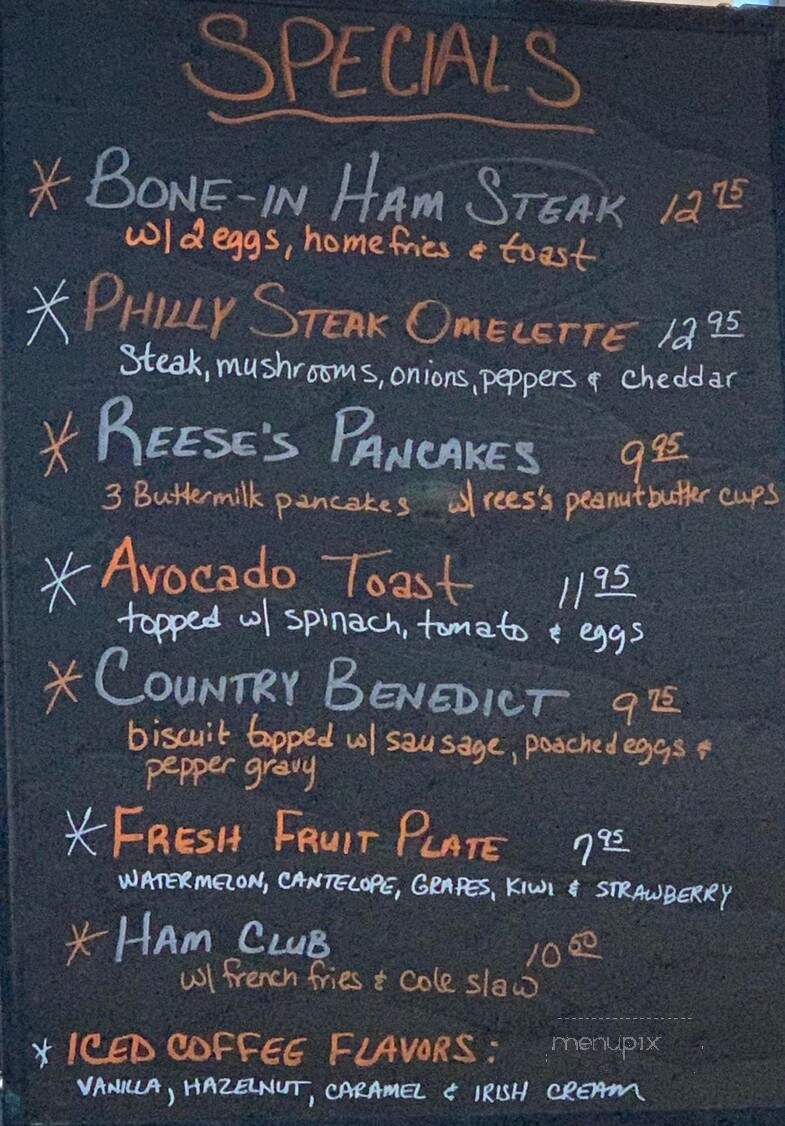 SPECIALS
* BONE-IN HAM STEAK 12 75
w/ 2 eggs, homefries & toast
* PHILLY STEAK OMELETTE 12 95
Steak, mushrooms, onions, peppers & cheddar
* REESE'S PANCAKES 9 95
3 Buttermilk pancakes w/ rees's peanut butter cups
* AVOCADO TOAST 11 95
topped w/ spinach, tomato & eggs
* COUNTRY BENEDICT 9 75
biscuit topped w/ sausage, poached eggs &
pepper gravy
* FRESH FRUIT PLATE 7 95
WATERMELON, CANTELOPE, GRAPES, KIWI & STRAWBERRY
* HAM CLUB 10 50
w/ french fries & cole slaw
menupix
* ICED COFFEE FLAVORS:
VANILLA, HAZELNUT, CARAMEL & IRISH CREAM